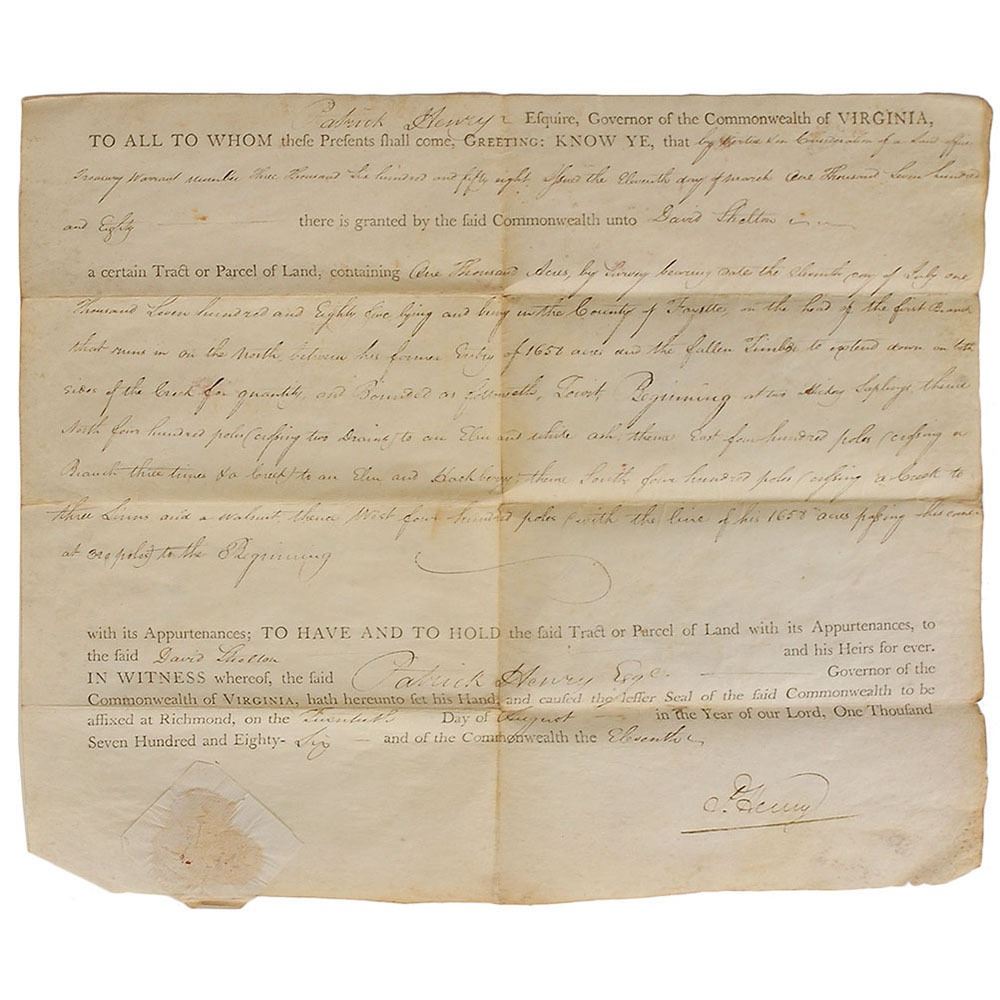 Patrick Henry Esquire, Governor of the Commonwealth of VIRGINIA,
TO ALL TO WHOM theſe Preſents ſhall come, GREETING: KNOW YE, that by Vertue & in Conſideration of a Land office
Treasury Warrant number Three Thousand Six hundred and fifty eight, Iſsued the Eleventh day of march One Thousand Seven hundred
and Eighty there is granted by the ſaid Commonwealth unto David Shelton
a certain Tract or Parcel of Land, containing One Thousand Acres, by Survey bearing date the day of July one
Thousand Seven hundred and Eighty five lying and being in the County of Fayette, on the head of the first Branch
that runs in on the North between his former Entry of 1650 acres and the fallen Timber to extend down on both
sides of the Creek for quantity, and Bounded as followeth, Towit, Beginning at two Hickory Saplings, thence
North four hundred poles (croſsing two Drains) to an Elm and white ash, thence East four hundred poles (croſsing a
Branch three times & a Creek) to an Elm and Hackberry, thence South four hundred poles (croſsing a Creek to
three Linns and a walnut, thence West four hundred poles (with the line of his 1650 acres paſsing his corner
at poles) to the Beginning
with its Appurtenances; TO HAVE AND TO HOLD the ſaid Tract or Parcel of Land with its Appurtenances, to
the ſaid David Shelton and his Heirs for ever.
IN WITNESS whereof, the ſaid Patrick Henry Esqr. Governor of the
Commonwealth of VIRGINIA, hath hereunto ſet his Hand, and cauſed the leſſer Seal of the ſaid Commonwealth to be
affixed at Richmond, on the Twentieth Day of August in the Year of our Lord, One Thouſand
Seven Hundred and Eighty- Six and of the Commonwealth the Eleventh
P. Henry